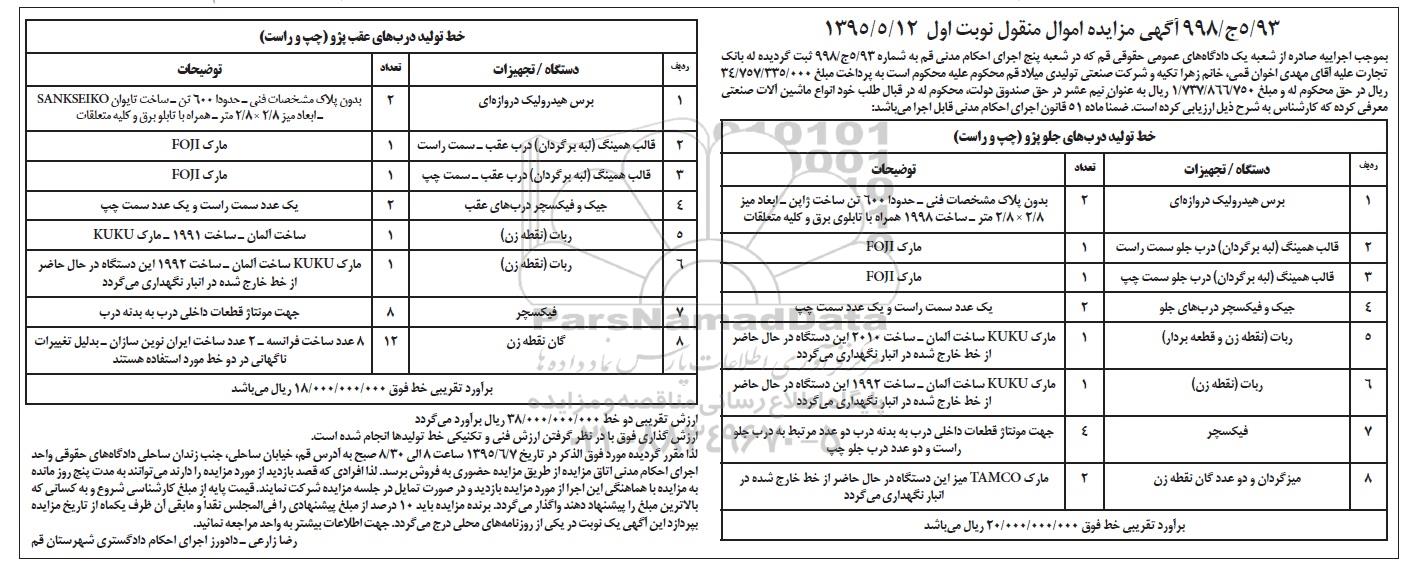 ۹۹۸/ج۵/۹۳ آگهی مزایده اموال منقول نوبت اول ۱۳۹۵/۵/۱۲
بموجب اجراییه صادره از شعبه یک دادگاه‌های عمومی حقوقی قم که در شعبه پنج اجرای احکام مدنی قم به شماره ۹۹۸/ج۵/۹۳ ثبت گردیده له بانک
تجارت علیه آقای مهدی اخوان قمی، خانم زهرا تکیه و شرکت صنعتی تولیدی میلاد قم محکوم علیه محکوم است به پرداخت مبلغ ۳۴/۷۵۷/۳۳۵/۰۰۰
ریال در حق محکوم له و مبلغ ۱/۷۳۷/۸۶۶/۷۵۰ ریال به عنوان نیم عشر در حق صندوق دولت، محکوم له در قبال طلب خود انواع ماشین آلات صنعتی
معرفی کرده که کارشناس به شرح ذیل ارزیابی کرده است. ضمناً ماده ۵۱ قانون اجرای احکام مدنی قابل اجرا می‌باشد:
خط تولید درب‌های جلو پژو (چپ و راست)
ردیف دستگاه / تجهیزات تعداد توضیحات
۱ برس هیدرولیک دروازه‌ای ۲ بدون پلاک مشخصات فنی ـ حدودا ۶۰۰ تن ساخت ژاپن ـ ابعاد میز
۲/۸ × ۲/۸ متر ـ ساخت ۱۹۹۸ همراه با تابلوی برق و کلیه متعلقات
۲ قالب همینگ (لبه برگردان) درب جلو سمت راست ۱ مارک FOJI
۳ قالب همینگ (لبه برگردان) درب جلو سمت چپ ۱ مارک FOJI
۴ جیک و فیکسچر درب‌های جلو ۲ یک عدد سمت راست و یک عدد سمت چپ
۵ ربات (نقطه زن و قطعه بردار) ۱ مارک KUKU ساخت آلمان ـ ساخت ۲۰۱۰ این دستگاه در حال حاضر
از خط خارج شده در انبار نگهداری می‌گردد
۶ ربات (نقطه زن) ۱ مارک KUKU ساخت آلمان ـ ساخت ۱۹۹۲ این دستگاه در حال حاضر
از خط خارج شده در انبار نگهداری می‌گردد
۷ فیکسچر ۴ جهت مونتاژ قطعات داخلی درب به بدنه درب دو عدد مرتبط به درب جلو
راست و دو عدد درب جلو چپ
۸ میزگردان و دو عدد گان نقطه زن ۲ مارک TAMCO میز این دستگاه در حال حاضر از خط خارج شده در
انبار نگهداری می‌گردد
برآورد تقریبی خط فوق ۲۰/۰۰۰/۰۰۰/۰۰۰ ریال می‌باشد
خط تولید درب‌های عقب پژو (چپ و راست)
ردیف دستگاه / تجهیزات تعداد توضیحات
۱ برس هیدرولیک دروازه‌ای ۲ بدون پلاک مشخصات فنی ـ حدودا ۶۰۰ تن ـ ساخت تایوان SANKSEIKO
ـ ابعاد میز ۲/۸ × ۲/۸ متر ـ همراه با تابلو برق و کلیه متعلقات
۲ قالب همینگ (لبه برگردان) درب عقب ـ سمت راست ۱ مارک FOJI
۳ قالب همینگ (لبه برگردان) درب عقب ـ سمت چپ ۱ مارک FOJI
۴ جیک و فیکسچر درب‌های عقب ۲ یک عدد سمت راست و یک عدد سمت چپ
۵ ربات (نقطه زن) ۱ ساخت آلمان ـ ساخت ۱۹۹۱ ـ مارک KUKU
۶ ربات (نقطه زن) ۱ مارک KUKU ساخت آلمان ـ ساخت ۱۹۹۲ این دستگاه در حال حاضر
از خط خارج شده در انبار نگهداری می‌گردد
۷ فیکسچر ۸ جهت مونتاژ قطعات داخلی درب به بدنه درب
۸ گان نقطه زن ۱۲ ۸ عدد ساخت فرانسه ـ ۲ عدد ساخت ایران نوین سازان ـ بدلیل تغییرات
ناگهانی در دو خط مورد استفاده هستند
برآورد تقریبی خط فوق ۱۸/۰۰۰/۰۰۰/۰۰۰ ریال می‌باشد
ارزش تقریبی دو خط ۳۸/۰۰۰/۰۰۰/۰۰۰ ریال برآورد می‌گردد
ارزش گذاری فوق با در نظر گرفتن ارزش فنی و تکنیکی خط تولیدها انجام شده است.
لذا مقرر گردیده مورد فوق الذکر در تاریخ ۱۳۹۵/۶/۷ ساعت ۸ الی ۸/۳۰ صبح به آدرس قم، خیابان ساحلی، جنب زندان ساحلی دادگاه‌های حقوقی واحد
اجرای احکام مدنی اتاق مزایده از طریق مزایده حضوری به فروش برسد. لذا افرادی که قصد بازدید از مورد مزایده را دارند می‌توانند به مدت پنج روز مانده
به مزایده با هماهنگی این اجرا از مورد مزایده بازدید و در صورت تمایل در جلسه مزایده شرکت نمایند. قیمت پایه از مبلغ کارشناسی شروع و به کسانی که
بالاترین مبلغ را پیشنهاد دهند واگذار می‌گردد. برنده مزایده باید ۱۰ درصد از مبلغ پیشنهادی را فی‌المجلس نقداً و مابقی آن ظرف یکماه از تاریخ مزایده
بپردازد این آگهی یک نوبت در یکی از روزنامه‌های محلی درج می‌گردد. جهت اطلاعات بیشتر به واحد مراجعه نمائید.
رضا زارعی ـ دادورز اجرای احکام دادگستری شهرستان قم
ParsNamadData
مرکز فرآوری اطلاعات پارس نماد داده‌ها
پایگاه اطلاع رسانی مناقصه و مزایده
۰۲۱-۸۸۳۴۹۶۷۰-۵